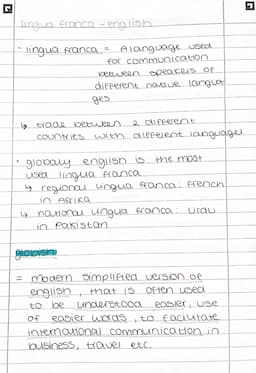 lingua franca - english
- lingua franca = A language used
for communication
between speakers of
different native langua
ges
↳ trade between 2 different
countries with different languages
• globaly english is the most
used lingua franca
↳ regional lingua franca: french
in Africa
↳ national lingua franca: urdu
in Pakistan
globish
= modern simplified version of
english, that is often used
to be understood easier, use
of easier words, to faciliate
international communication in
business, travel etc.